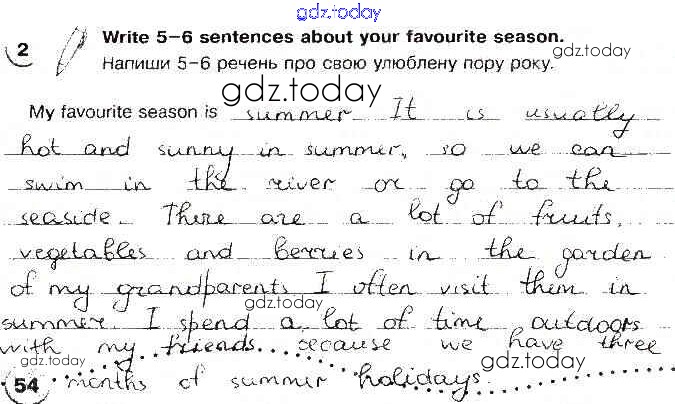 gdz.today
2 Write 5–6 sentences about your favourite season.
gdz.today
Напиши 5–6 речень про свою улюблену пору року.
gdz.today
My favourite season is summer. It is usually
hot and sunny in summer, so we can
swim in the river or go to the
seaside. There are a lot of fruits,
vegetables and berries in the garden
of my grandparents I often visit them in
gdz.today
summer. I spend a lot of time outdoors
with my friends because we have three
gdz.today
54 months of summer holidays.